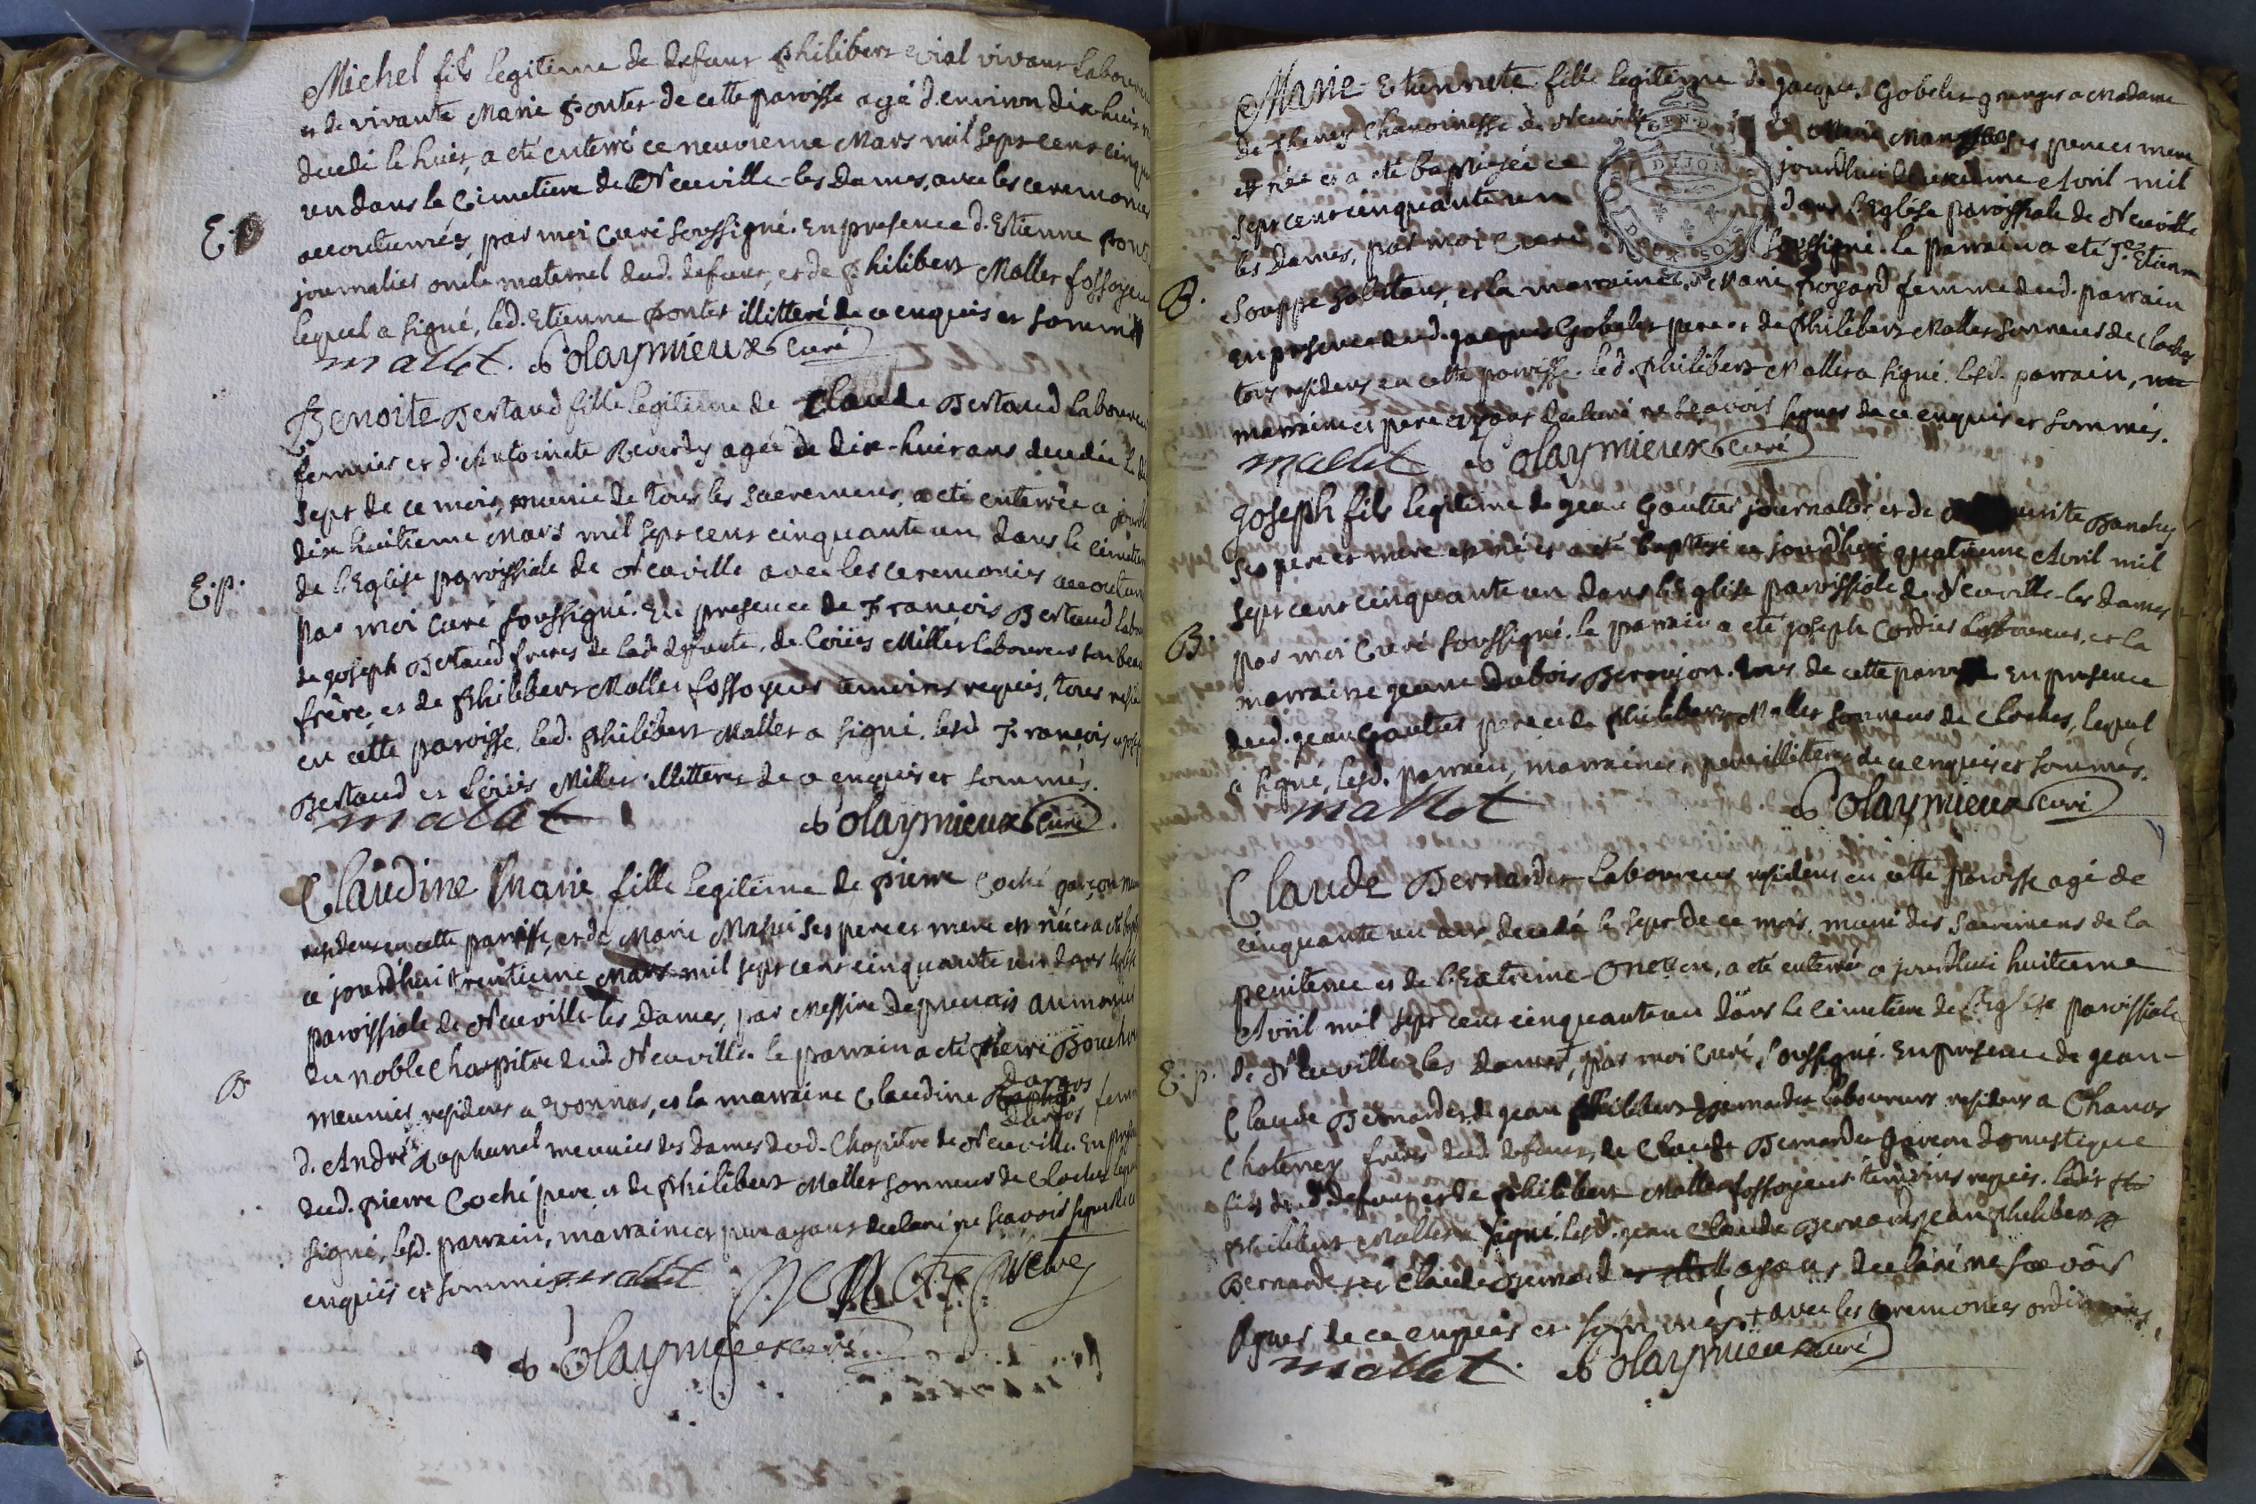 Michel fils legitime de defunt philibert vial vivant Laboureur
et de vivante Marie pontet de cette paroisse agé d'environ dix-huit
decedé le huit, a eté enterré ce neuvieme Mars mil sept cent cinquante
un dans le Cimetiere de Neuville-les Dames, avec les ceremonies
accoutumées, par moi Curé soussigné. En presence d'Etienne pontet
E.
journalier oncle maternel dud. defunt, et de philibert Mallet fossoyeur
lequel a signé, led. Etienne pontet illitteré de ce enquis et sommé
mallet. Polaymieux Curé
Benoite Bertaud fille legitime de Claude Bertaud Laboureur
fermier et d'Antoinete Reverdy agée de dix-huit ans decedée le dix
sept de ce mois, munie de tous les sacremens, a eté enterrée a jourd'hui
dix huitieme Mars mil sept cent cinquante un dans le cimetiere
de l'Eglise paroissiale de Neuville avec les ceremonies accoutum
E.p.
par moi Curé soussigné. En presence de François Bertaud labou
de joseph Bertaud freres de lad. defunte, de Loüis Millet laboureur son beau
frère, et de philibert Mallet fossoyeur temoins requis, tous resid
en cette paroisse, led. philibert Mallet a signé, lesd. François et joseph
Bertaud et Loüis Millet illitteres de ce enquis et sommés.
mallet Polaymieux Curé.
Claudine Marie fille legitime de pierre Coché garçon meu
residens en cette paroisse, et de Marie ses pere et mere est née et a eté bapt
ce jourd'hui trentieme Mars mil sept cent cinquante un dans l'eglise
paroissiale de Neuville-les Dames, par Messire Depreuais aumonier
du noble Chapitre dud. Neuville. le parrain a eté pierre Bouchon
B
meunier, residens a Vonnas, et la marraine Claudine Dargos femme
d'André Raphanel meunier des Dames dud. Chapitre de Neuville. En presence
dud. pierre Coché pere et de philibert Mallet sonneur de Cloches lequel
signé, lesd. parrain, marraine et pere ayant declaré ne sçavoir signer de ce
enquis et sommés mallet
Polaymieux curé.
Marie-Etiennete fille legitime de jacques Gobelet granger a Madame
de Chanoinesse de Neuville de Marie ses pere et mere
est née et a eté baptizée ce jourd'hui Avril mil
sept cent cinquante un dans l'Eglise paroissiale de Neuville
les Dames, par moi Curé soussigné. le parrain a eté Je. Etienne
B.
Souppe habitant, et la marraine Marie Poyard femme dud. parrain
En presence dud. jacques Gobelet pere et de philibert Mallet sonneur de cloches
tous residens en cette paroisse. led. philibert Mallet a signé. lesd. parrain,
marraine et pere ayant declaré ne sçavoir signer de ce enquis et sommés.
mallet Polaymieux Curé
Joseph fils legitime de jean Gautier journalier et de
ses pere et mere est né et a eté baptisé ce jourd'hui quatrieme Avril mil
sept cent cinquante un dans l'Eglise paroissiale de Neuville-les Dames
B.
par moi Curé soussigné. le parrain a eté joseph Cordier Laboureur, et la
marraine jeanne Dubois Beroujon. tous de cette paroisse En presence
dud. jean Gautier pere et de philibert Mallet sonneur de Cloches, lequel
a signé, lesd. parrain, marraine et pere illitteres de ce enquis et sommés.
mallet Polaymieux Curé
Claude Bernardet Laboureur residens en cette Paroisse agé de
cinquante un ans decedé le sept de ce mois, muni des sacremens de la
penitence et de l'Extreme-Onction, a eté enterré a jourd'hui huitieme
Avril mil sept cent cinquante un dans le cimetiere de l'Eglise paroissiale
E.p.
de Neuville les Dames, par moi Curé, soussigné. En presence de jean-
Claude Bernardet, de jean philibert Bernardet Laboureurs residens a Chanos
Chatenay freres dud. defunt, de Claude Bernardet garcon domestique
fils dud. defunt et de philibert Mallet fossoyeur temoins requis. ledit
philibert Mallet a signé. lesd. jean Claude Bernardet jean philibert
Bernardet et Claude Bernardet ayant declaré ne sçavoir
signer de ce enquis et sommés. + avec les ceremonies ordinaires
mallet. Polaymieux Curé